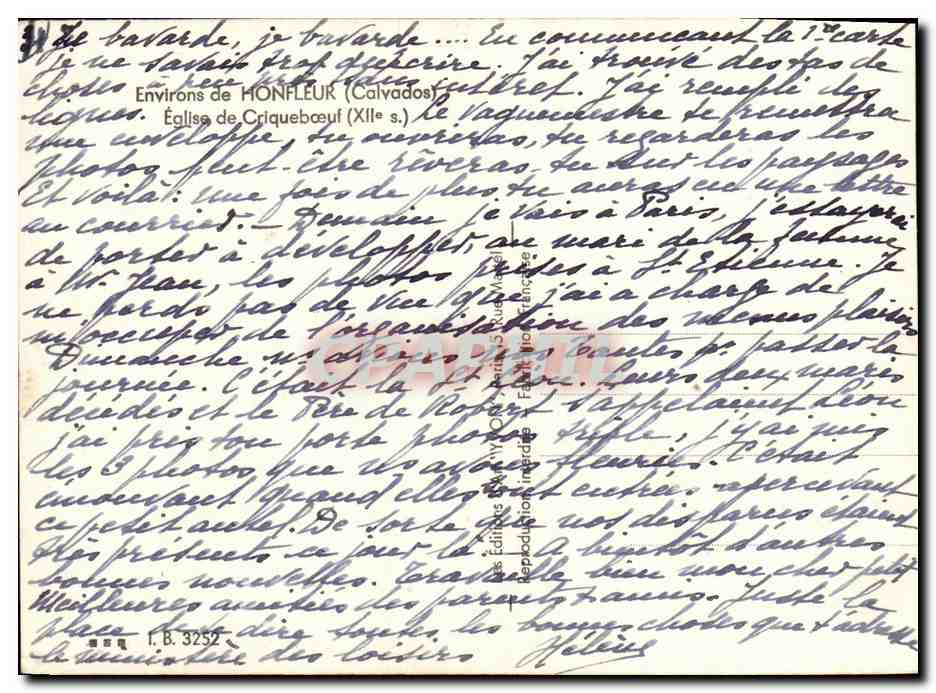 3) Je bavarde, je bavarde .... En commençant la 1re carte
je ne savais trop qu'écrire. J'ai trouvé des tas de
choses à peu près sans intérêt. J'ai rempli des
Environs de HONFLEUR (Calvados)
lignes. Le vaguemestre te remettra
Église de Criquebœuf (XIIe s.)
une enveloppe, tu ouvriras, tu regarderas les
photos peut-être rêveras-tu sur les paysages
Et voilà: une fois de plus tu auras eu une lettre
au courrier. - Demain je vais à Paris, j'essayerai
de porter à développer, au mari de la femme
à M. Jean, les photos prises à St Etienne. Je
ne perds pas de vue que j'ai à charge de
m'occuper de l'organisation des menus plaisirs
Dimanche ns avions nos tantes pr passer la
journée. C'était la St Léon. Leurs deux maris
décédés et le Père de Robert s'appelaient Léon
j'ai pris ton porte photos trèfle, j'y ai mis
les 3 photos que ns avons fleuries. C'était
émouvant quand elles sont entrées apercevant
ce petit autel. De sorte que nos disparus étaient
très présents ce jour là. A bientôt d'autres
bonnes nouvelles. Travaille bien mon cher petit
Meilleures amitiés des parents + amis. Juste la
place de dire toutes les bonnes choses que t'adresse
le ministère des loisirs Hélène
I. B. 3252
Les Éditions d'Art "YVON", Paris, 15, Rue Martel
Reproduction interdite - Fabrication Française
CPAPHIL